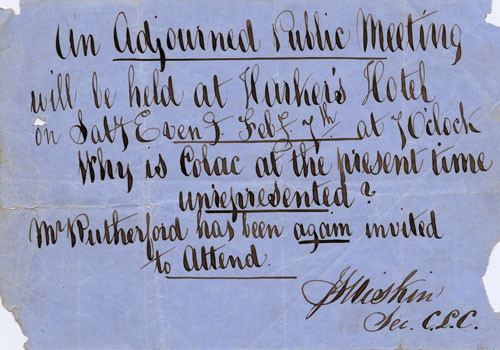 An Adjourned Public Meeting
will be held at Hunker's Hotel
on Saty Eveng Feby 7th at 7 O'clock
Why is Colac at the present time
unrepresented?
Mr Rutherford has been again invited
to Attend.
J Miskin
Sec. C.L.C.